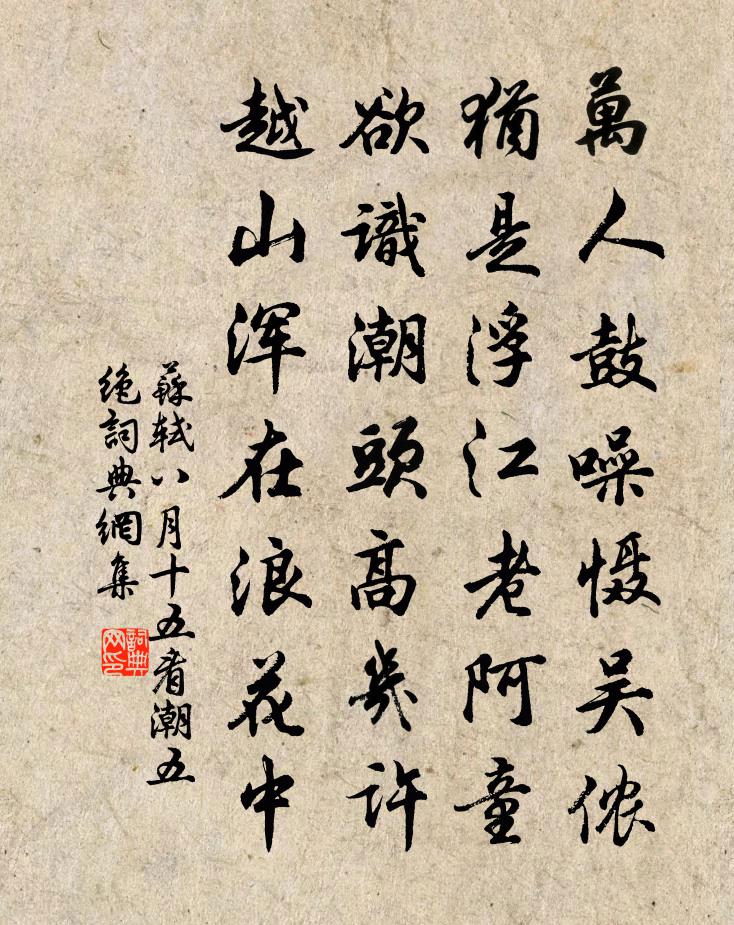 萬人鼓噪慑吴侬
猶是浮江老阿童
欲識潮頭高幾許
越山浑在浪花中
蘇軾八月十五看潮五
絶詞典網集
詞典
网印